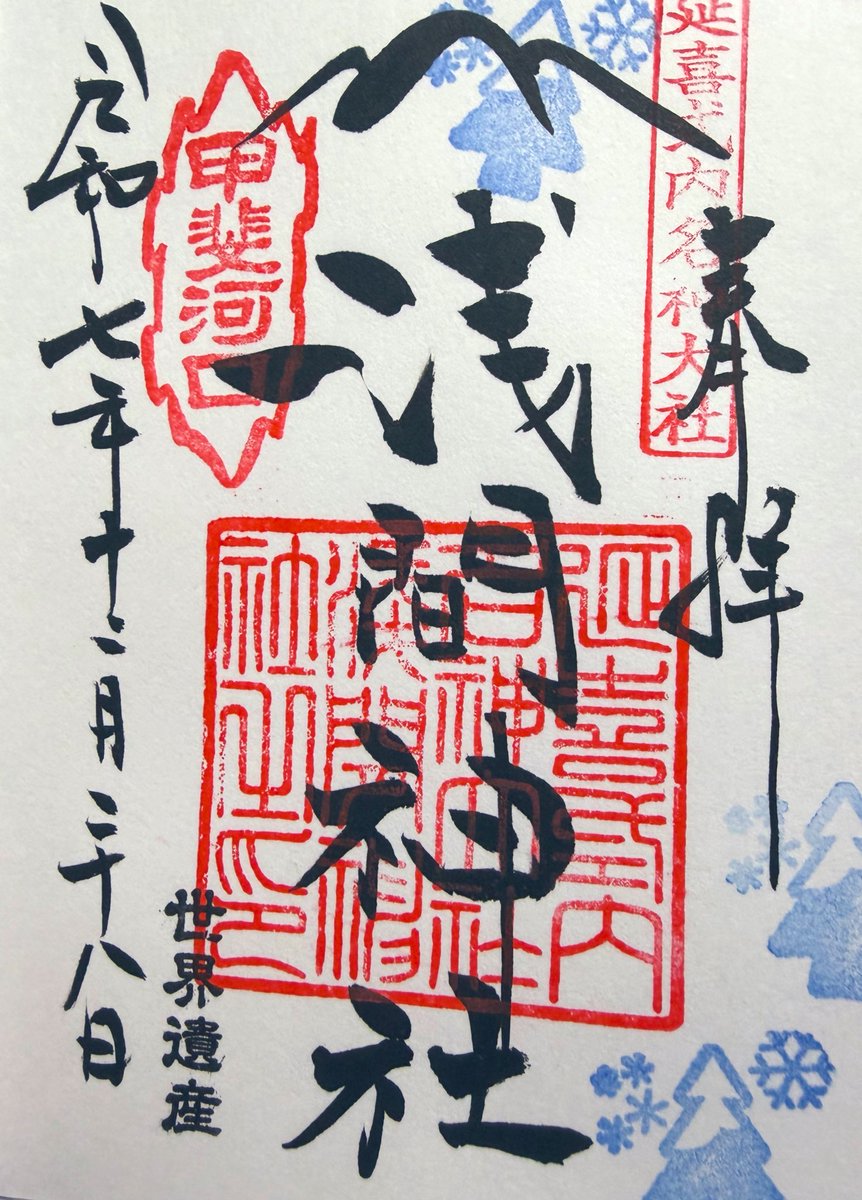 延喜式内名神大社
奉拝
浅間神社
延喜式内
名神大社
甲斐河口
世界遺産
令和七年十二月二十八日